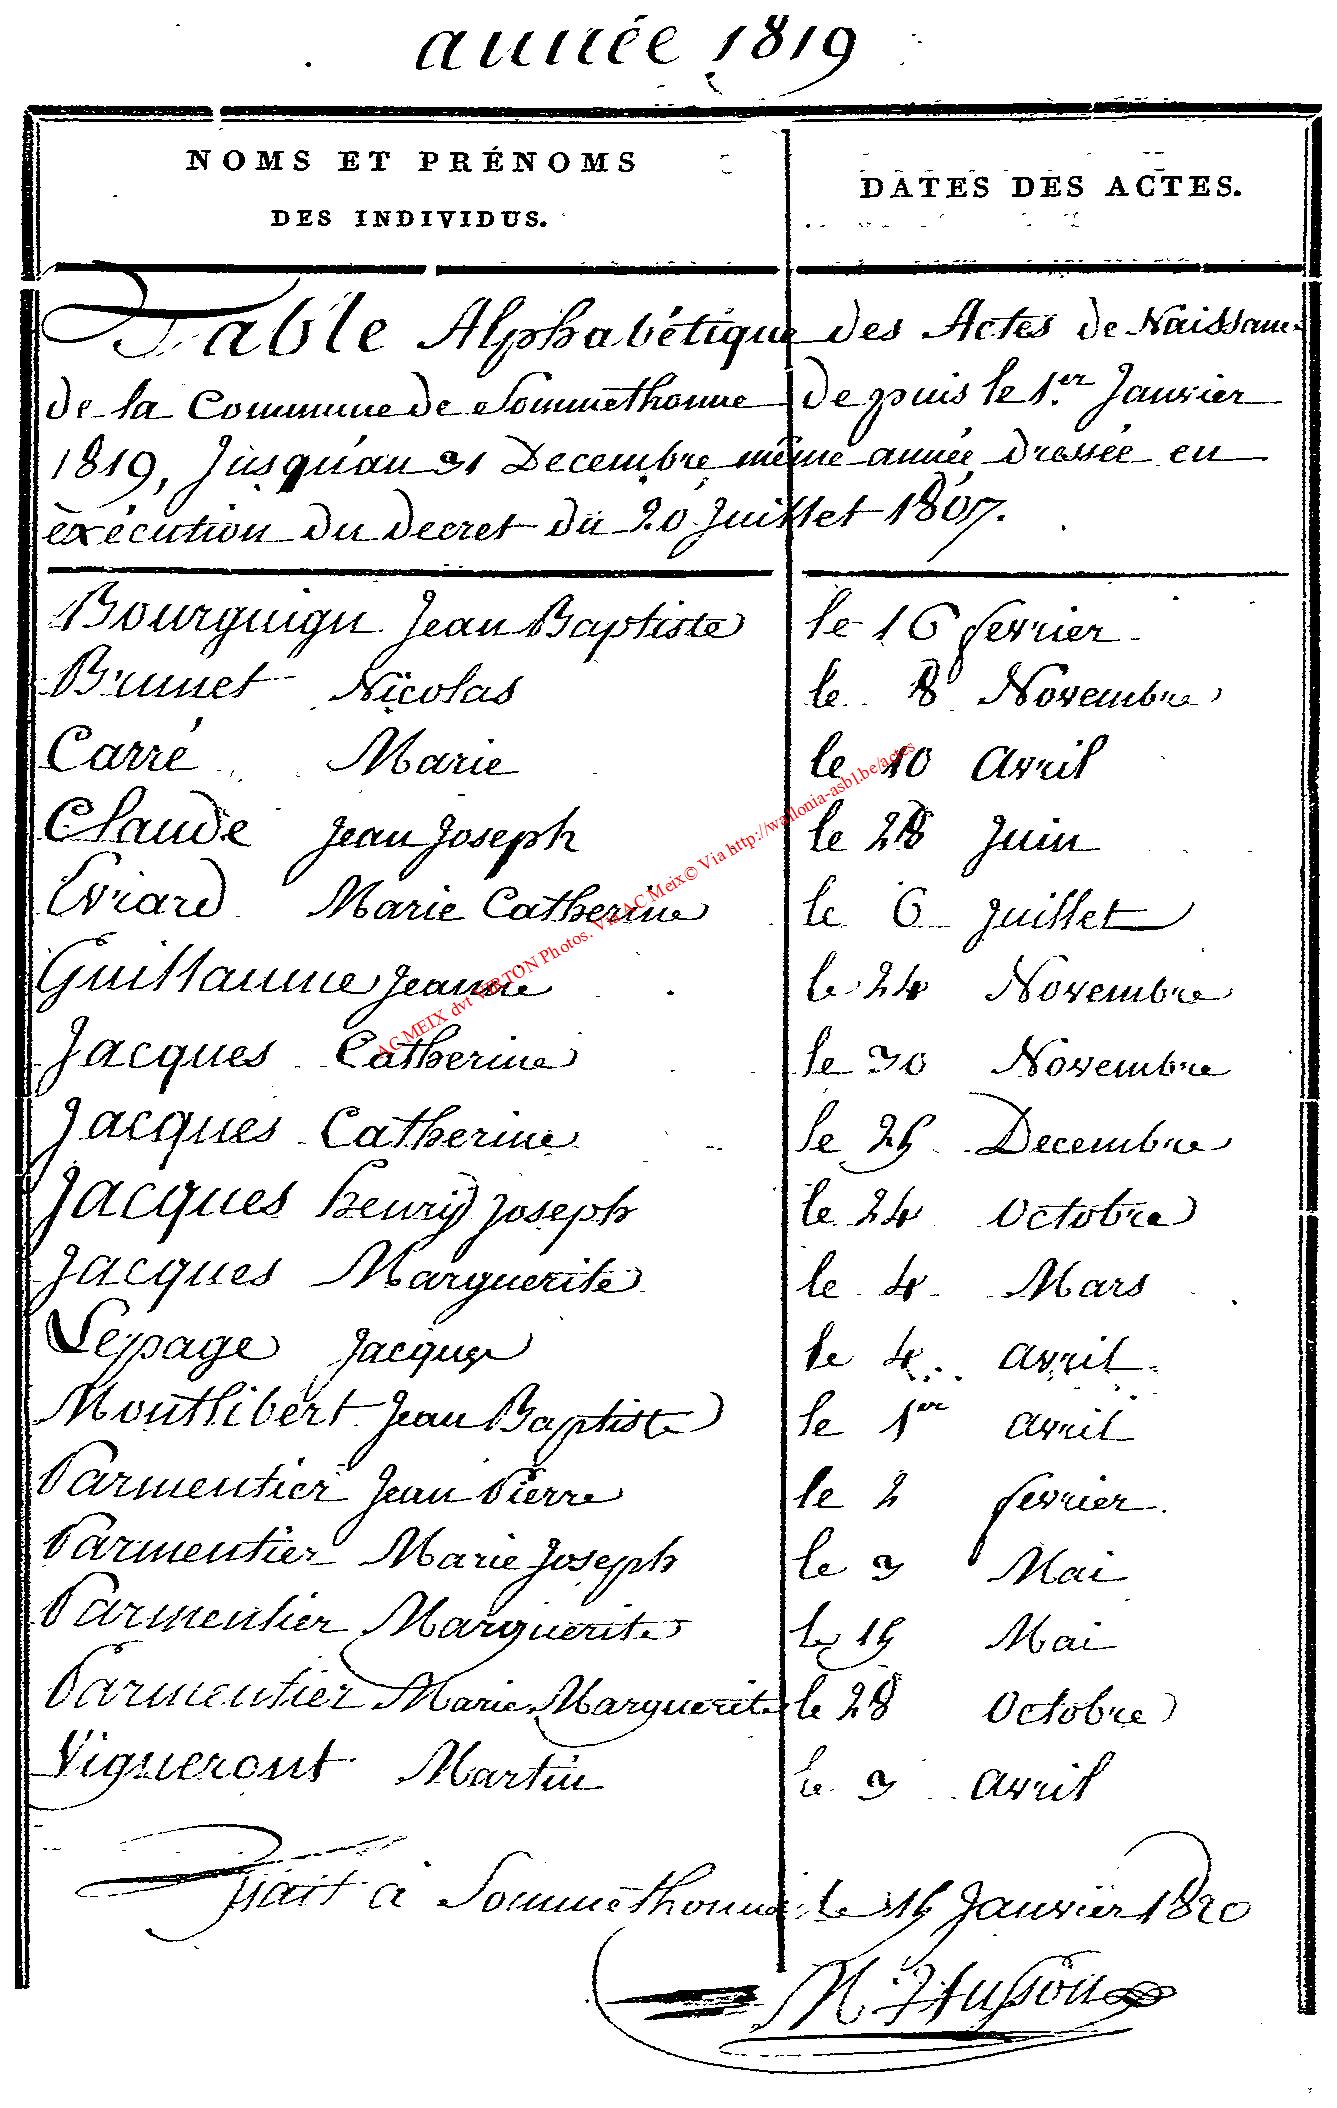 année 1819
NOMS ET PRÉNOMS
DES INDIVIDUS.
DATES DES ACTES.
Table Alphabétique des Actes de Naissance
de la Commune de Sommethonne Depuis le 1.er Janvier
1819, Jusqu'au 31 Decembre même année dressée en
exécution du decret du 20 Juillet 1807.
Bourguign Jean Baptiste le 16 fevrier
Brunet Nicolas le 8 Novembre
Carré Marie le 10 Avril
Claude Jean Joseph le 28 Juin
Evrard Marie Catherine le 6 Juillet
Guillaume Jeanne le 24 Novembre
Jacques Catherine le 30 Novembre
Jacques Catherine le 25 Decembre
Jacques henry Joseph le 24 Octobre
Jacques Marguerite le 4 Mars
Lepage Jacques le 4 avril
Montlibert Jean Baptiste le 1er avril
Parmentier Jean Pierre le 2 fevrier
Parmentier Marie Joseph le 3 Mai
Parmentier Marguerite le 15 Mai
Parmentier Marie Marguerite le 28 Octobre
Vigneront Martin le 3 avril
fait à Sommethonne le 15 Janvier 1820
M. Husson
AC MEIX dvt VIRTON Photos. Via AC Meix© Via http://wallonia-asbl.be/actes